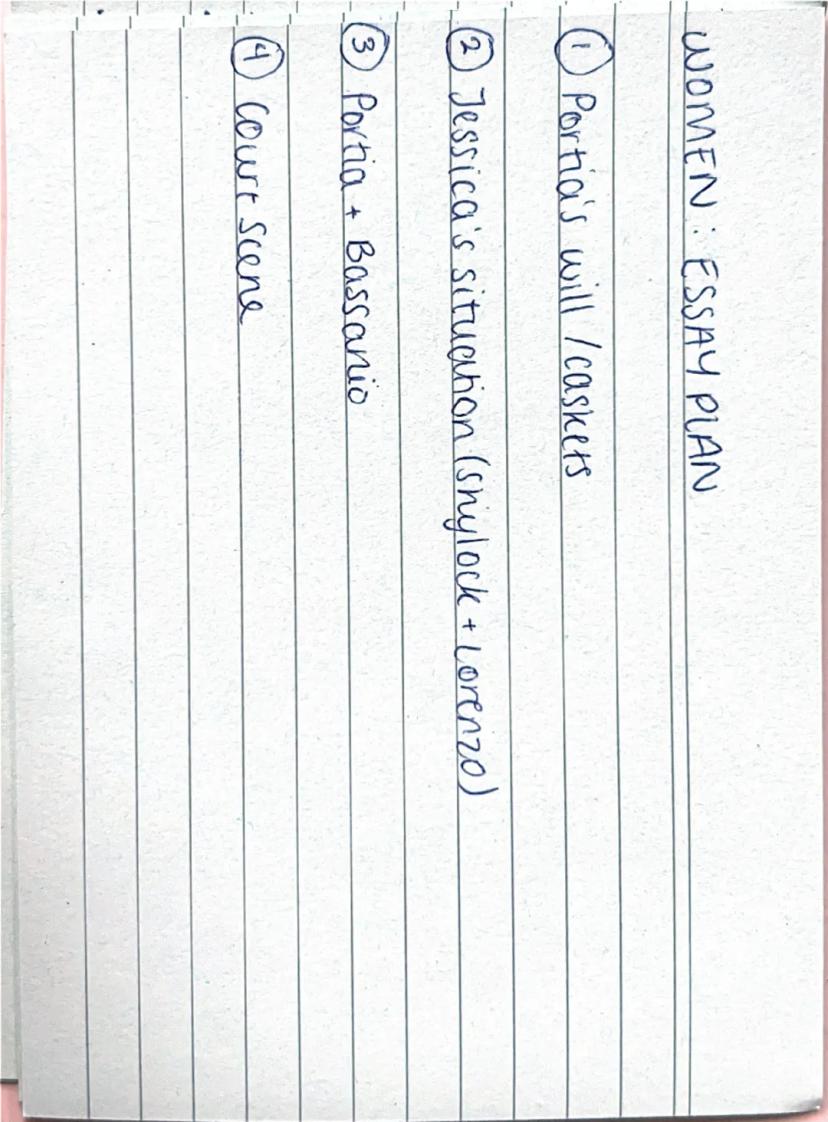 WOMEN: ESSAY PLAN
① Portia's will / caskets
② Jessica's situation (Shylock + Lorenzo)
③ Portia + Bassanio
④ Court scene